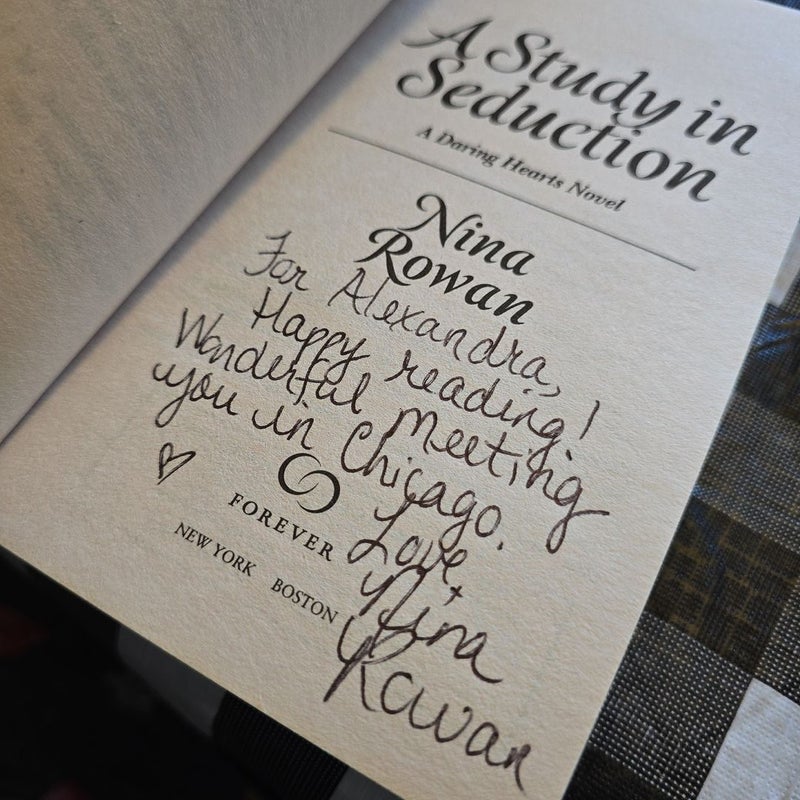 A Study in
Seduction
A Daring Hearts Novel
Nina
Rowan
For Alexandra,
Happy reading!
Wonderful meeting
you in Chicago.
Love,
Nina
Rowan
FOREVER
NEW YORK BOSTON